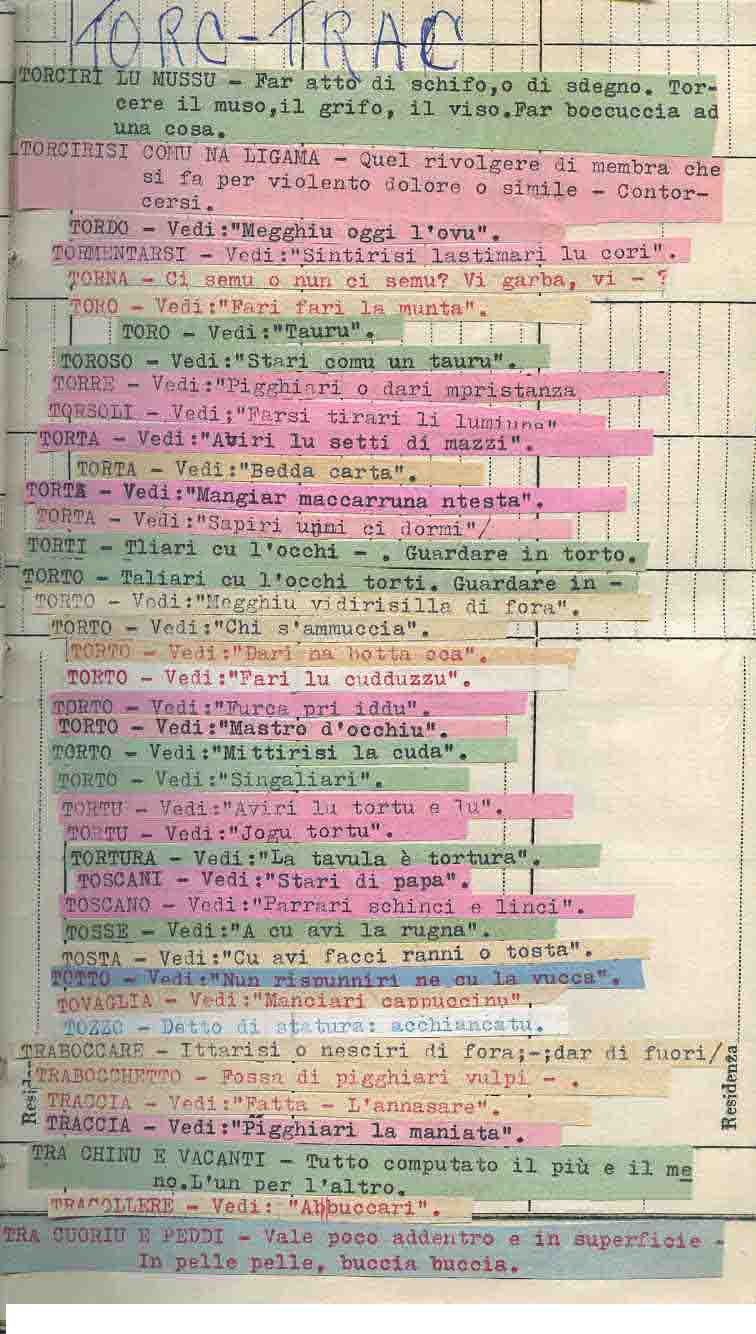 TORC-TRAC
TORCIRI LU MUSSU - Far atto di schifo,o di sdegno. Tor-
cere il muso,il grifo, il viso.Far boccuccia ad
una cosa.
TORCIRISI COMU NA LIGAMA - Quel rivolgere di membra che
si fa per violento dolore o simile - Contor-
cersi.
TORDO - Vedi:"Megghiu oggi l'ovu".
TORMENTARSI - Vedi:"Sintirisi lastimari lu cori".
TORNA - Ci semu o nun ci semu? Vi garba, vi - ?
TORO - Vedi:"Fari fari la munta".
TORO - Vedi:"Tauru".
TOROSO - Vedi:"Stari comu un tauru".
TORRE - Vedi:"Pigghiari o dari mpristanza
TORSOLI - Vedi;"Farsi tirari li
TORTA - Vedi:"Aviri lu setti di mazzi".
TORTA - Vedi:"Bedda carta".
TORTA - Vedi:"Mangiar maccarruna ntesta".
TORTA - Vedi:"Sapiri unni ci dormi"/
TORTI - Tliari cu l'occhi - . Guardare in torto.
TORTO - Taliari cu l'occhi torti. Guardare in -
TORTO - Vedi:"Megghiu vidirisilla di fora".
TORTO - Vedi:"Chi s'ammuccia".
TORTO - Vedi:"Dari na botta cca".
TORTO - Vedi:"Fari lu cudduzzu".
TORTO - Vedi:"Furca pri iddu".
TORTO - Vedi:"Mastro d'occhiu".
TORTO - Vedi:"Mittirisi la cuda".
TORTO - Vedi:"Singaliari".
TORTU - Vedi:"Aviri lu tortu e lu".
TORTU - Vedi:"Jogu tortu".
TORTURA - Vedi:"La tavula è tortura".
TOSCANI - Vedi:"Stari di papa".
TOSCANO - Vedi:"Parrari schinci e linci".
TOSSE - Vedi:"A cu avi la rugna".
TOSTA - Vedi:"Cu avi facci ranni o tosta".
TOTTO - Vedi:"Nun rispunniri ne cu la vucca".
TOVAGLIA - Vedi:"Manciari cappuccinu".
TOZZO - Detto di statura: acchiancatu.
TRABOCCARE - Ittarisi o nesciri di fora;-;dar di fuori/
TRABOCCHETTO - Fossa di pigghiari vulpi - .
TRACCIA - Vedi:"Fatta - L'annasare".
TRACCIA - Vedi:"Pigghiari la maniata".
Residenza
TRA CHINU E VACANTI - Tutto computato il più e il me
no.L'un per l'altro.
TRACOLLERE - Vedi: "Abbuccari".
TRA CUORIU E PEDDI - Vale poco addentro e in superficie -
In pelle pelle, buccia buccia.